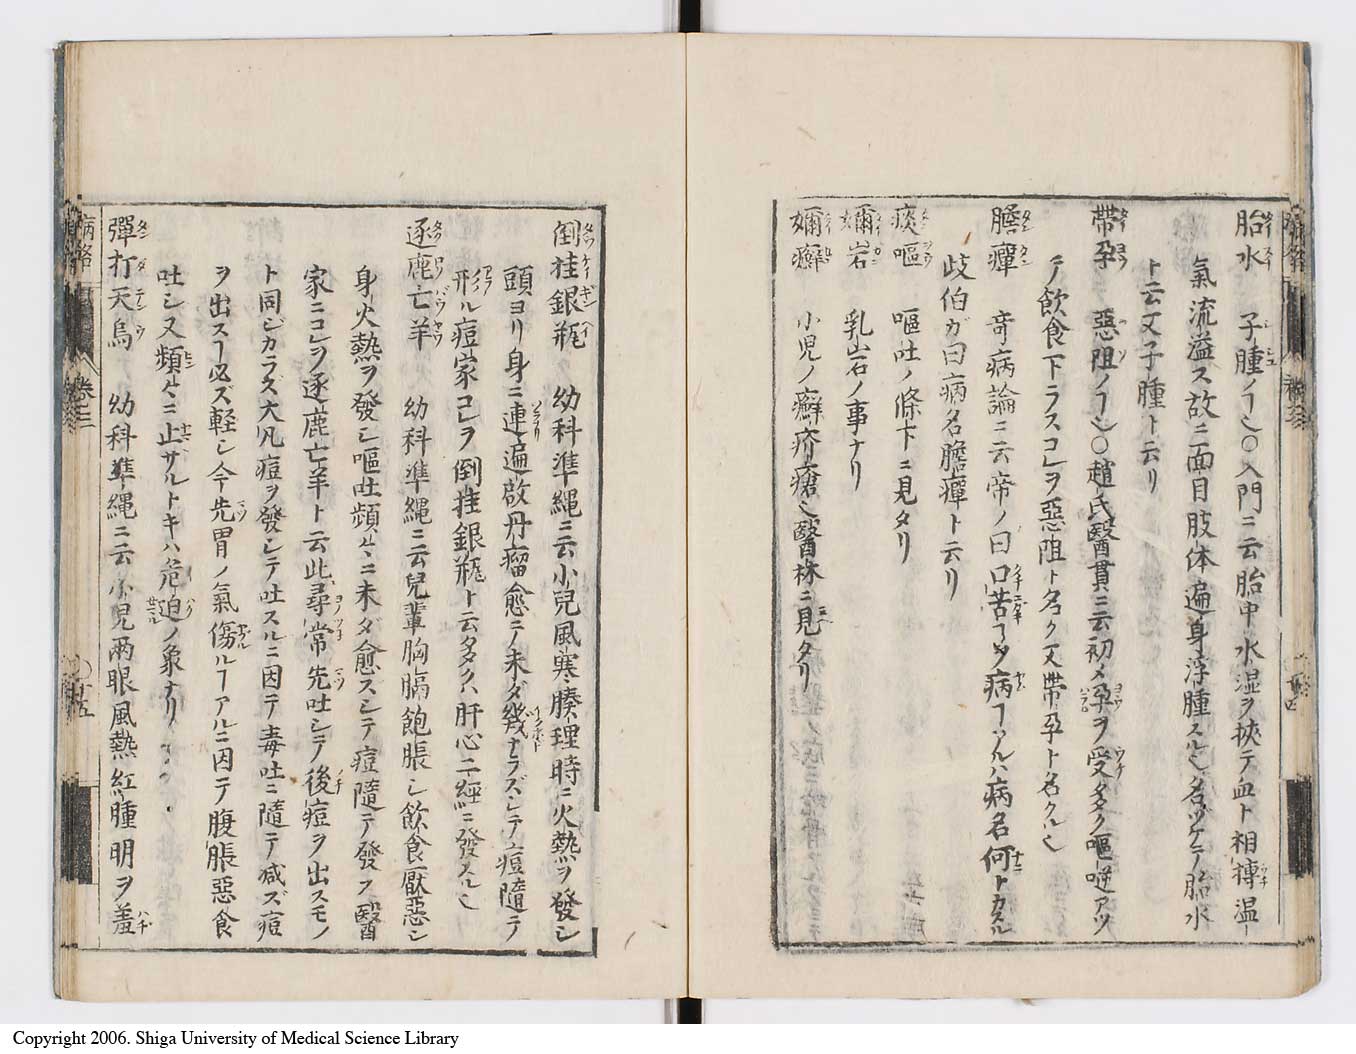 胎水 子腫ノヿ也〇入門ニ云胎中水湿ヲ挾テ血ト相搏温
氣流溢ス故ニ面目肢体遍身浮腫スル也名ツケテ胎水
ト云又子腫ト云リ
帶孕 惡阻ノヿ也〇趙氏醫貫ニ云初メ孕ヲ受多ク嘔逆アツ
テ飲食下ラスコレヲ惡阻ト名ク又帶孕ト名クル也
膽癉 奇病論ニ云帝ノ曰口苦ヲ病ヿアルハ病名何トカスル
歧伯ガ曰病名膽癉ト云リ
痰嘔 嘔吐ノ條下ニ見タリ
嬭岩 乳岩ノ事ナリ
嬭癬 小児ノ癬疥瘡也醫林ニ見タリ
倒挂銀瓶 幼科準縄ニ云小兒風寒腠理時ニ火熱ヲ發シ
頭ヨリ身ニ連遍敀丹瘤愈テ未ダ幾ナラズシテ痘隨テ
形ル痘家コレヲ倒挂銀瓶ト云多クハ肝心二經ニ發スル也
逐鹿亡羊 幼科準縄ニ云兒輩胸膈飽脹シ飲食厭惡シ
身火熱ヲ發シ嘔吐頻々ニ未ダ愈スシテ痘隨テ發ス醫
家ニコレヲ逐鹿亡羊ト云此尋常先吐シテ後痘ヲ出スモノ
ト同ジカラズ大凡痘ヲ發シテ吐スルニ因テ毒吐ニ隨テ減ズ痘
ヲ出スヿ必ズ軽シ今先胃ノ氣傷ルヿアルニ因テ腹脹惡食
吐シ又頻々ニ止ザルトキハ危迫ノ象ナリ
彈打天烏 幼科準縄ニ云小児兩眼風熱紅腫明ヲ羞
巻三
十五
Copyright 2006. Shiga University of Medical Science Library